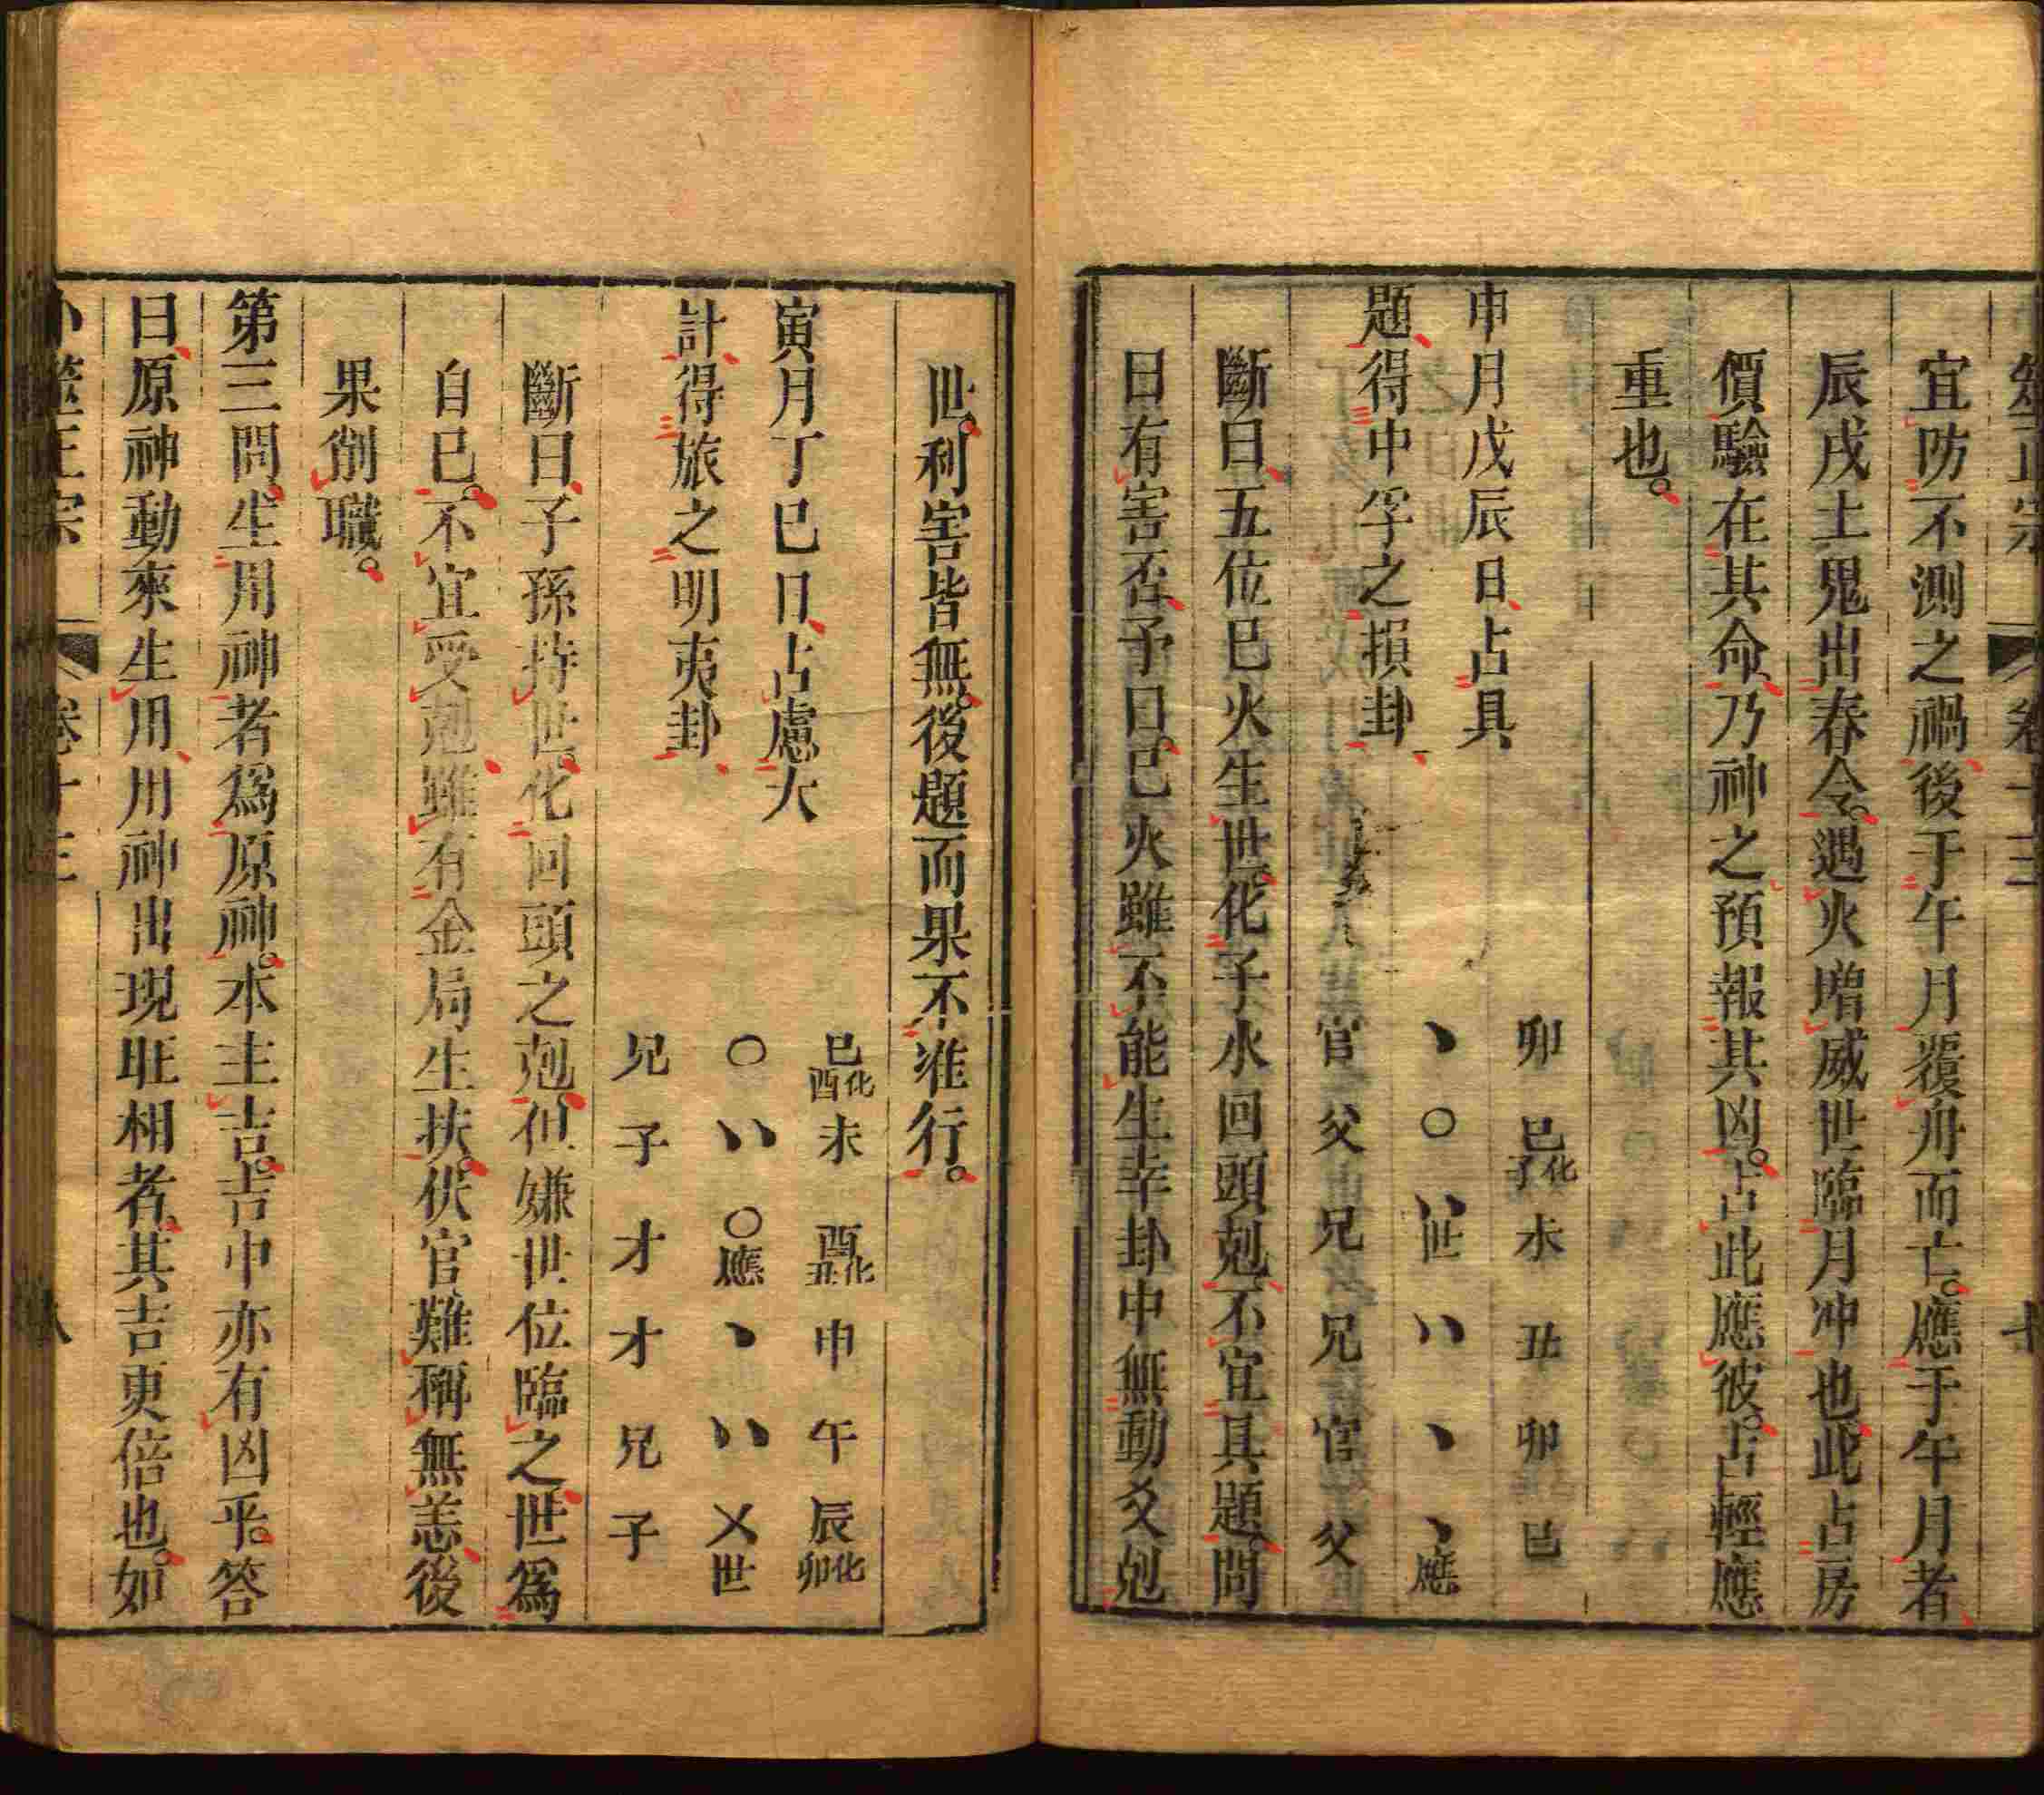 筮正宗　卷十三　七
宜防不測之禍後于午月覆舟而亡。應于午月者
辰戌土鬼出春令。遇火增威世臨月冲也此占房
價驗在其命乃神之預報其凶。占此應彼。占輕應
重也。
申月戊辰日占具　卯　巳化子　未　丑　卯　巳
、　○　〃世　〃　、　、應
題得中孚之損卦　官　父　兄　兄　官　父
斷曰五位巳火生世化子水回頭剋不宜具題。問
日有害否予曰。巳火雖不能生幸卦中無動爻剋
世。利害皆無。後題而果不准行。
寅月丁巳日占慮大　巳化酉　未　酉化丑　申　午　辰化卯
○　〃　○應　、　〃　㐅世
計得旅之明夷卦　兄　子　才　才　兄　子
斷曰子孫持世。化回頭之剋但嫌世位臨之世爲
自己。不宜受剋雖有金局生扶。伏官難稱無恙後
果削職。
第三問。生用神者爲原神。本主吉。吉中亦有凶乎。答
曰原神動來生用用神出現旺相者。其吉更倍也。如
卜筮正宗　卷十三　八